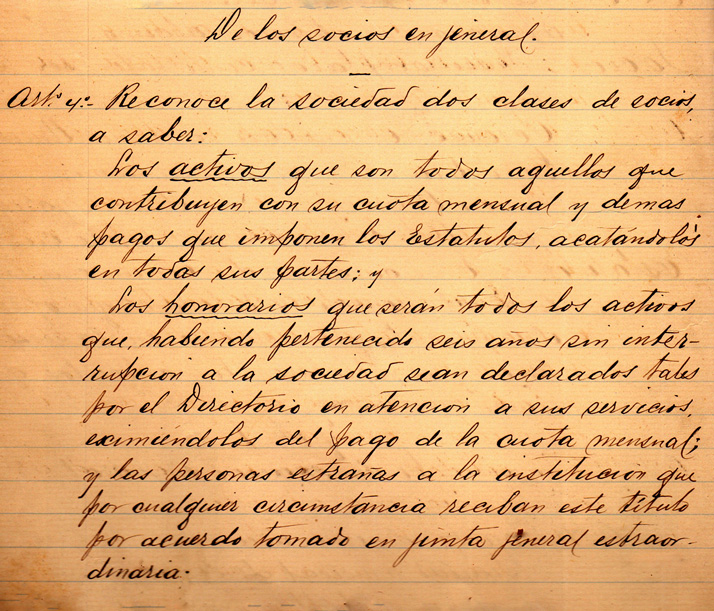 De los socios en jeneral.
Art.º 4.º- Reconoce la sociedad dos clases de socios,
a saber:
Los activos que son todos aquellos que
contribuyen con su cuota mensual y demas
pagos que imponen los Estatutos, acatándolos
en todas sus partes; y
Los honorarios que serán todos los activos
que, habiendo pertenecido seis años sin inter-
rupcion a la sociedad sean declarados tales
por el Directorio en atencion a sus servicios,
eximiéndolos del pago de la cuota mensual;
y las personas estrañas a la institucion que
por cualquier circunstancia reciban este título
por acuerdo tomado en junta jeneral estraor-
dinaria.